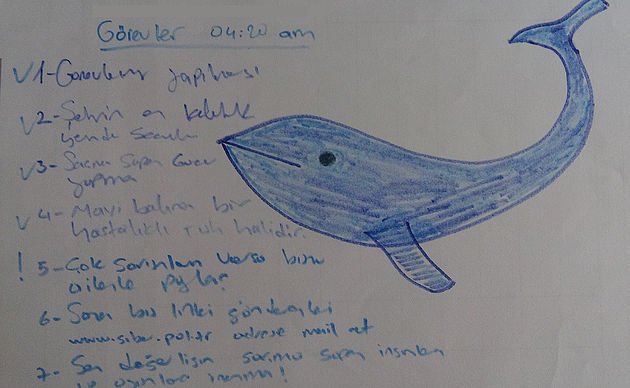 Görevler 04:20 am
✓ 1- Görevlerin yapılması
✓ 2- Şehrin en kalabalık
yerinde
✓ 3- Saçma Sapan
yapma
✓ 4- Mavi balina bir
hastalıklı ruh halidir.
! 5- Çok sorunların varsa bunu
ailenle paylaş
6- Sana bu linki gönderenleri
www.siber.pol.tr adrese mail at
7- Sen değerlisin saçma sapan insanlara
ve oyunlara inanma!